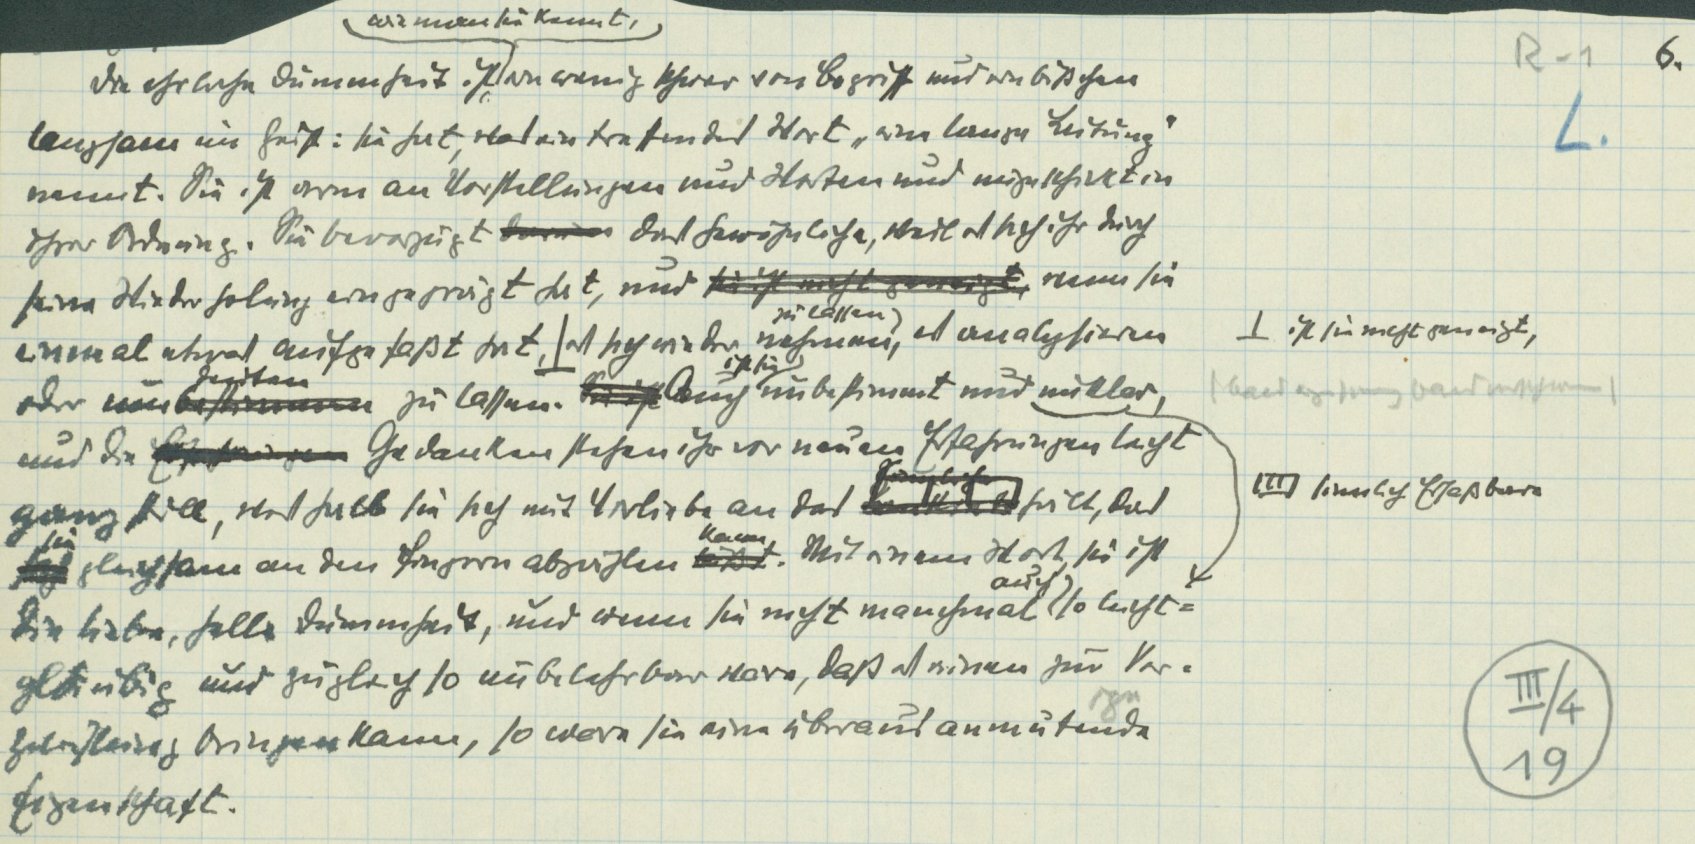 wie man sie kennt,
R-1 6.
Die ehrliche Dummheit ist ein wenig schwer von Begriff und ein bißchen
L.
langsam im Geist: sie hat, was ein treffendes Wort „eine lange Leitung“
nennt. Sie ist arm an Vorstellungen und Worten und ungeschickt in
ihrer Ordnung. Sie bevorzugt darum das Gewöhnliche, weil es sich ihr durch
seine Wiederholung eingeprägt hat, und sie ist nicht geneigt, wenn sie
zu lassen
einmal etwas aufgefaßt hat, ⊥ es sich wieder nehmen, es analysieren
⊥ ist sie nicht geneigt,
deuten ist sie
oder zu lassen. Sie ist Auch unbestimmt und unklar,
und die Erfahrungen Gedanken stehen ihr vor neuen Erfahrungen leicht
III sinnlich Erfaßbare
ganz still, weshalb sie sich mit Vorliebe an das hält, das
sie kann,
gleichsam an den Fingern abzählen läßt. Mit einem Wort, sie ist
auch
die liebe, helle Dummheit, und wenn sie nicht manchmal so leicht=
gläubig und zugleich so unbelehrbar wäre, daß es einen zur Ver=
zweiflung bringen kann, so wäre sie eine überaus anmutende
Eigenschaft.
III/4
19